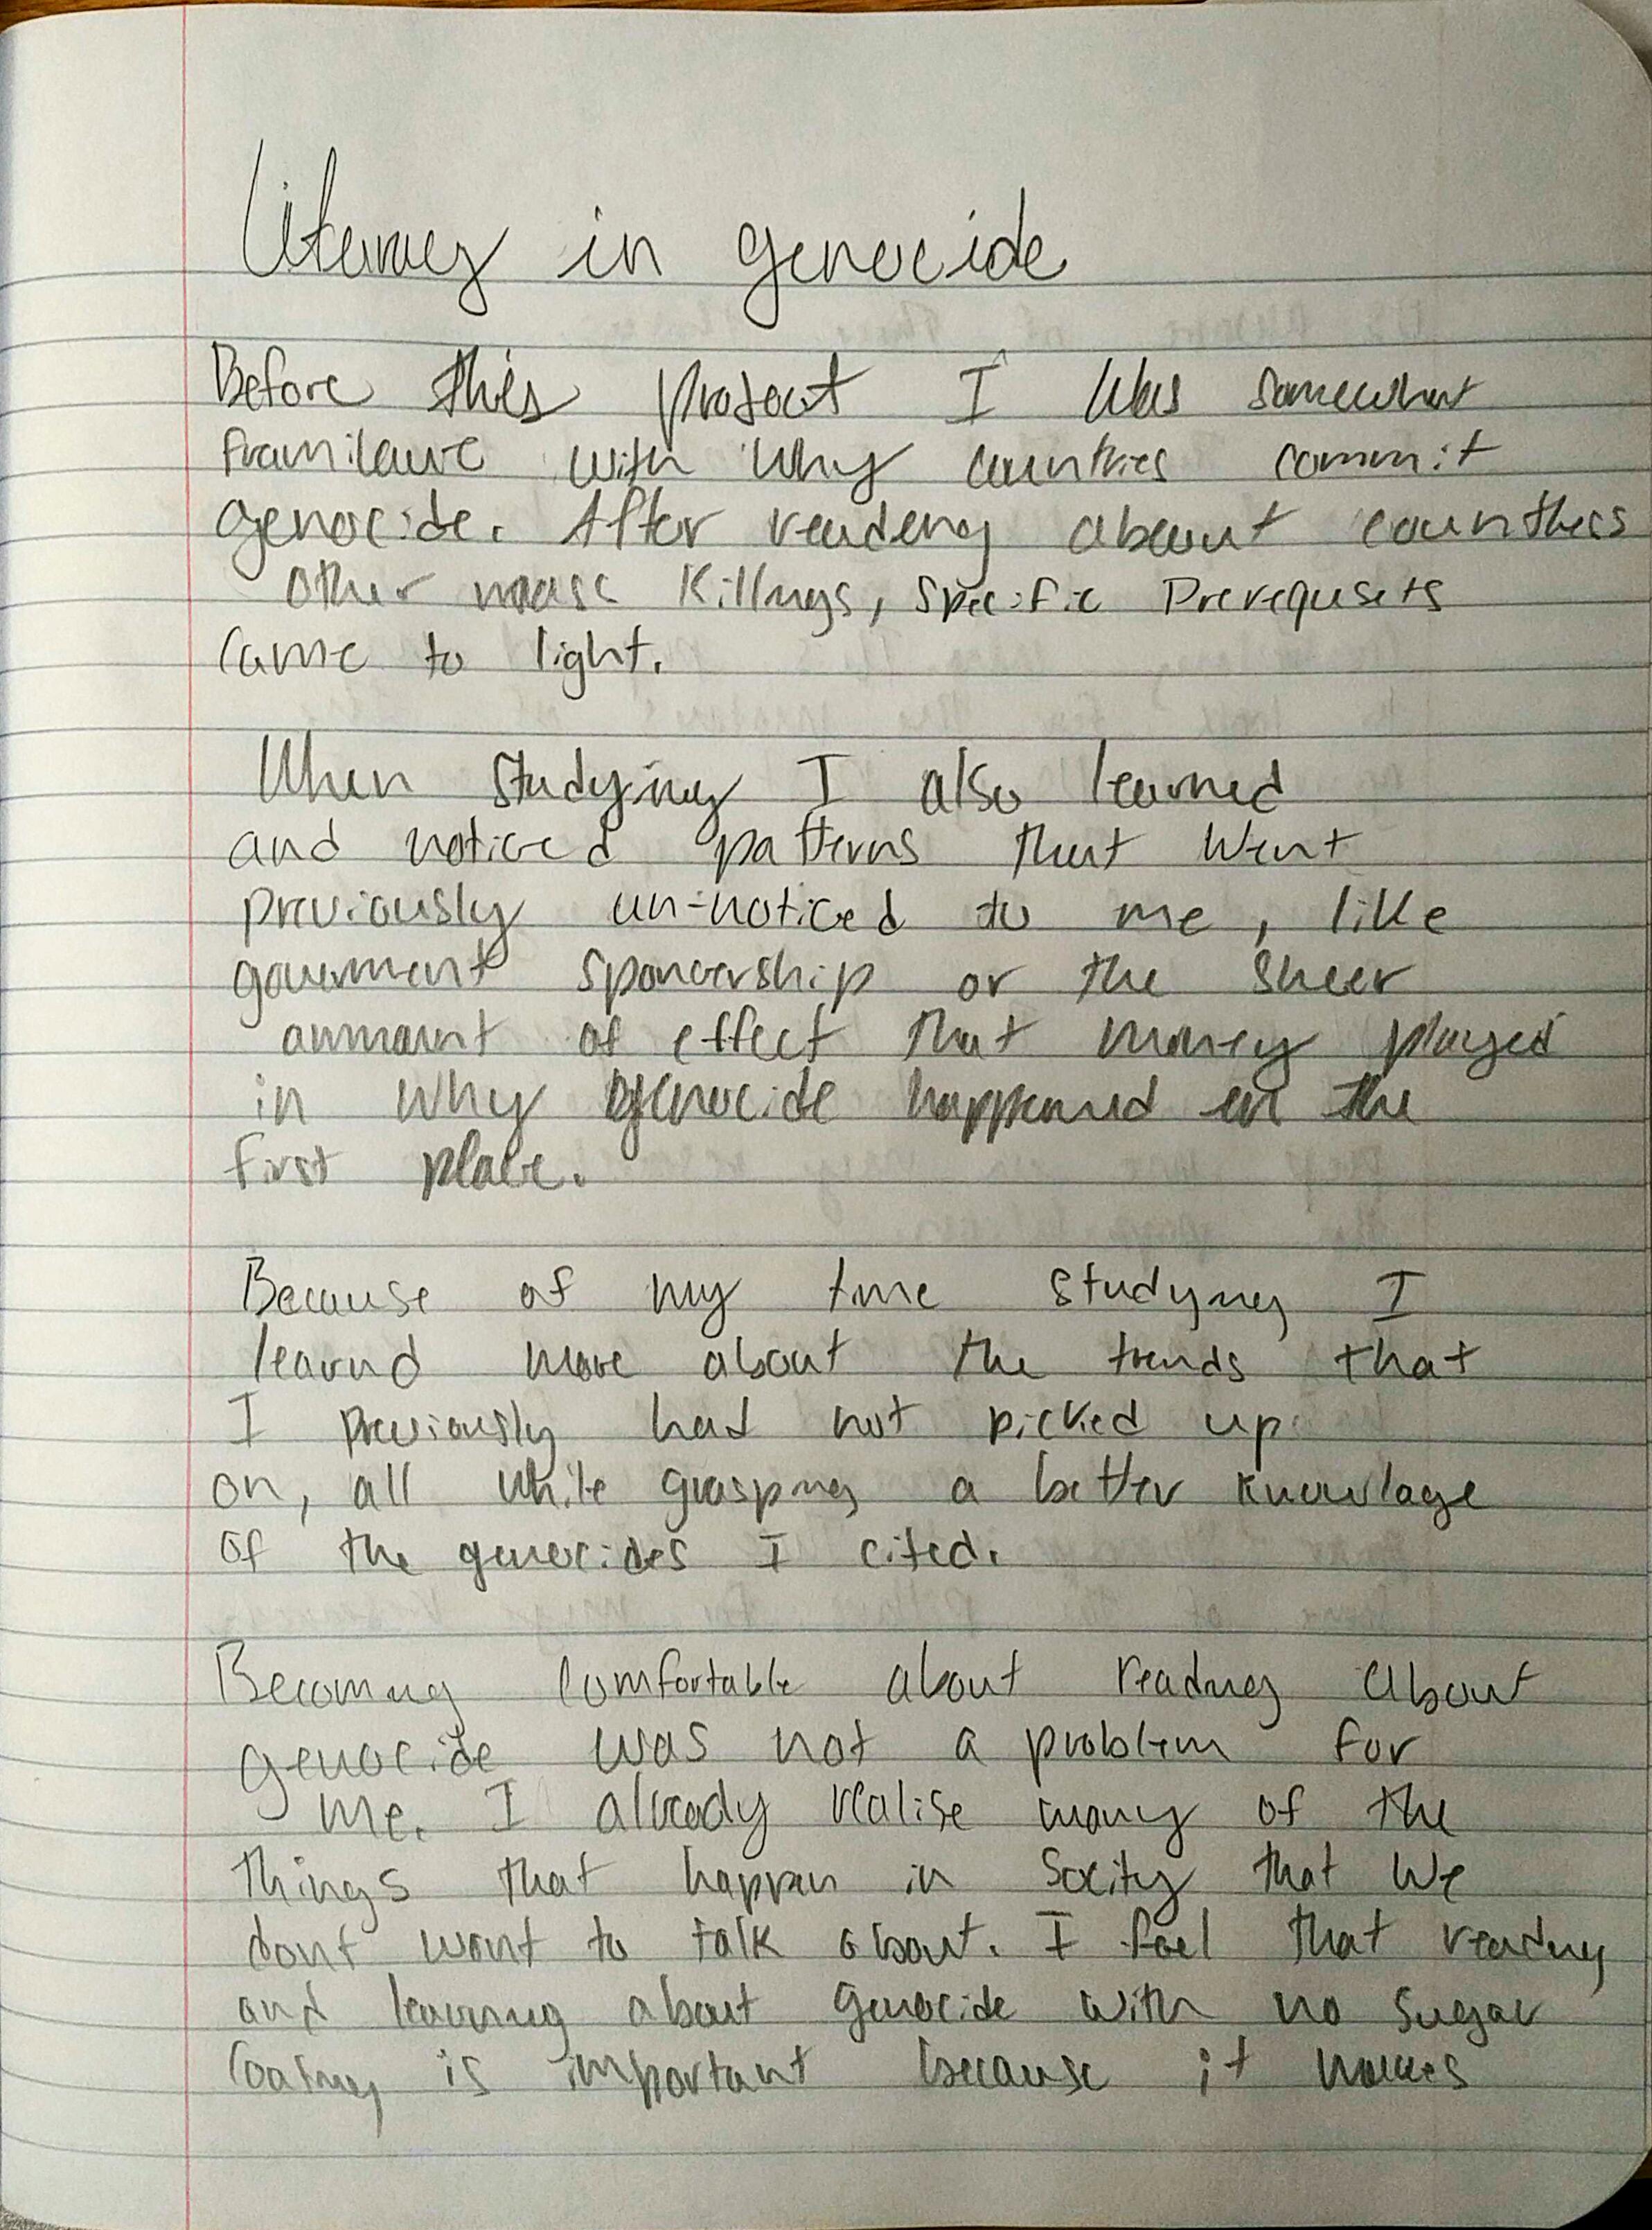 Literacy in genocide
Before this project I was somewhat
framilaure with why countries commit
genocide. After reading about counthess
other mass killings, specific prerequsets
came to light.
When studying I also learned
and noticed patterns that went
previously un-noticed to me, like
goverment sponcership or the sheer
ammount of effect that money played
in why genocide happened in the
first place.
Because of my time studying I
learnd more about the trends that
I previously had not picked up
on, all while grasping a better knowlage
of the genocides I cited.
Becoming comfortable about reading about
genocide was not a problem for
me. I already realise many of the
things that happen in socity that we
dont want to talk about. I feel that reading
and learning about genocide with no sugar
coating is important because it makes